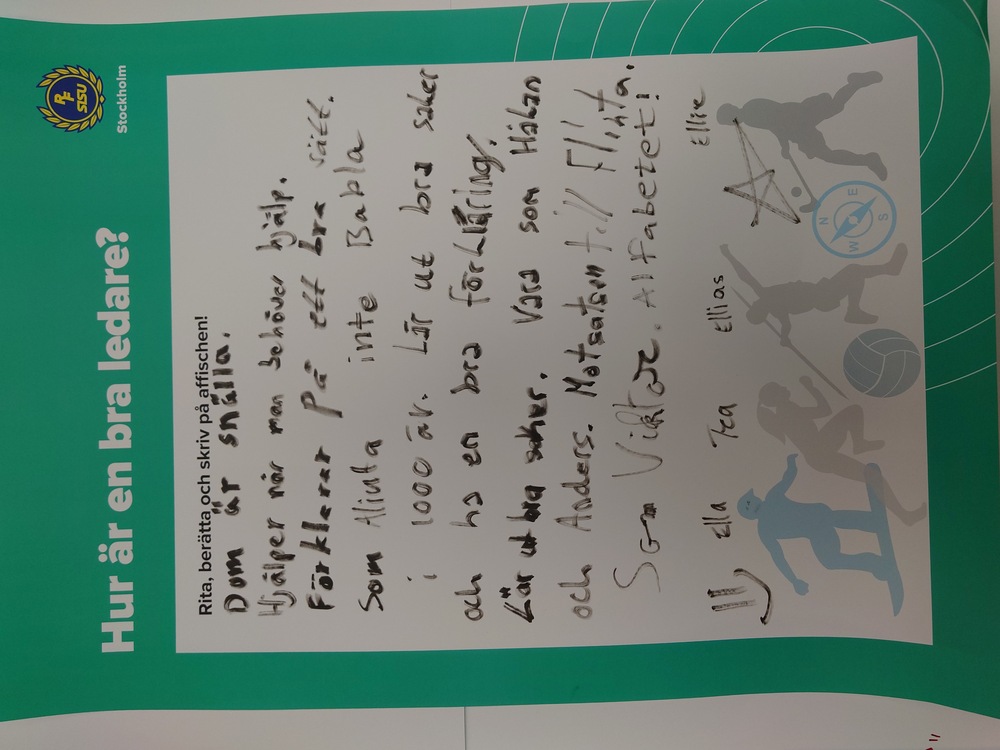 Hur är en bra ledare?
RF
SISU
Stockholm
Rita, berätta och skriv på affischen!
Dom är snälla.
Hjälper när man behöver hjälp.
Förklarar på ett bra sätt.
Som Aliuta inte Babla
i 1000 år. Lär ut bra saker
och ha en bra förklaring.
Lär ut bra saker. Vara som Håkan
och Anders. Motsatsen till Fli
Flinta.
Som Viktor. Alfabetet!
Ella Tea Ellias Ellie
N
E
S
W